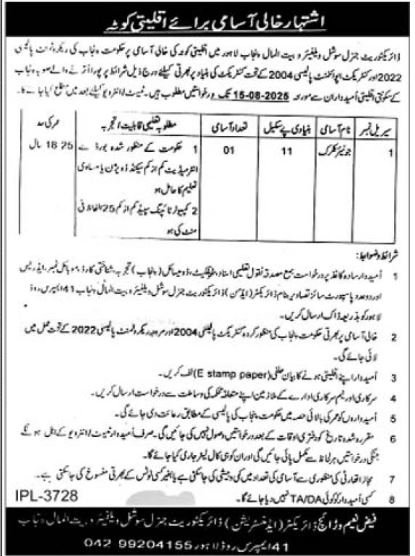 اشتہار خالی آسامی برائے اقلیتی کوٹہ
ڈائریکٹوریٹ جنرل سوشل ویلفیئر و بیت المال پنجاب لاہور میں اقلیتی کوٹہ کی خالی آسامی پر حکومت پنجاب کی ریکروٹمنٹ پالیسی
2022 اور کنٹریکٹ اپوائنٹمنٹ پالیسی 2004 کے تحت کنٹریکٹ کی بنیاد پر بھرتی کیلئے درج ذیل شرائط پر پورا اترنے والے صوبہ پنجاب
کے سکونتی اقلیتی امیدواران سے مورخہ 2025-08-15 تک درخواستیں مطلوب ہیں۔ ٹیسٹ / انٹرویو کیلئے بعد میں مطلع کیا جائے گا۔
سیریل نمبر | نام آسامی | بنیادی پے سکیل | تعداد آسامی | مطلوبہ تعلیمی قابلیت / تجربہ | عمر کی حد
1 | جونیئر کلرک | 11 | 01 | 1 حکومت کے منظور شدہ بورڈ سے | 18-25 سال
انٹرمیڈیٹ کم از کم سیکنڈ ڈویژن یا مساوی
تعلیم کا حامل ہو
2 کمپیوٹر ٹائپنگ سپیڈ کم از کم 25 الفاظ فی
منٹ کی ہو
شرائط و ضوابط:
1 امیدوار سادہ کاغذ پر درخواست بمع مصدقہ نقول تعلیمی اسناد، ڈومیسائل (پنجاب) تجربہ، شناختی کارڈ، موبائل نمبر، ایڈریس
اور دو عدد پاسپورٹ سائز تصاویر بنام ڈائریکٹر (ایڈمن) ڈائریکٹوریٹ جنرل سوشل ویلفیئر و بیت المال پنجاب 41 ایمپریس روڈ
لاہور کو بذریعہ ڈاک ارسال کریں۔
2 خالی آسامی پر بھرتی حکومت پنجاب کی منظور کردہ کنٹریکٹ پالیسی 2004 اور مروجہ ریکروٹمنٹ پالیسی 2022 کے تحت عمل میں
لائی جائے گی۔
3 امیدوار اپنے اقلیتی ہونے کا بیان حلفی (E stamp paper) لف کریں۔
4 سرکاری اور نیم سرکاری ادارے کے ملازمین اپنے متعلقہ محکمہ کی وساطت سے درخواست ارسال کریں۔
5 امیدواروں کو عمر کی بالائی حد میں حکومت پنجاب کی پالیسی کے مطابق رعایت دی جائے گی۔
6 مقررہ شدہ تاریخ کو دفتری اوقات کے بعد درخواستیں وصول نہیں کی جائیں گی۔ صرف امیدوار ٹیسٹ / انٹرویو کے اہل ہونگے
جنکی درخواستیں ہر لحاظ سے مکمل پائی جائیں گی اور ان کو ہی کال لیٹر جاری کیا جائے گا۔
7 مجاز اتھارٹی کی منظوری سے آسامی کی تعداد میں کمی و بیشی کی جاسکتی ہے یا بغیر کسی نوٹس کے بھرتی منسوخ کی جاسکتی ہے۔
8 کسی امیدوار کو کوئی TA/DA نہیں دیا جائے گا۔
IPL-3728
فیض نعیم وڑائچ ڈائریکٹر (ایڈمنسٹریشن) ڈائریکٹوریٹ جنرل سوشل ویلفیئر و بیت المال، پنجاب
41 ایمپریس روڈ لاہور 042 99204155